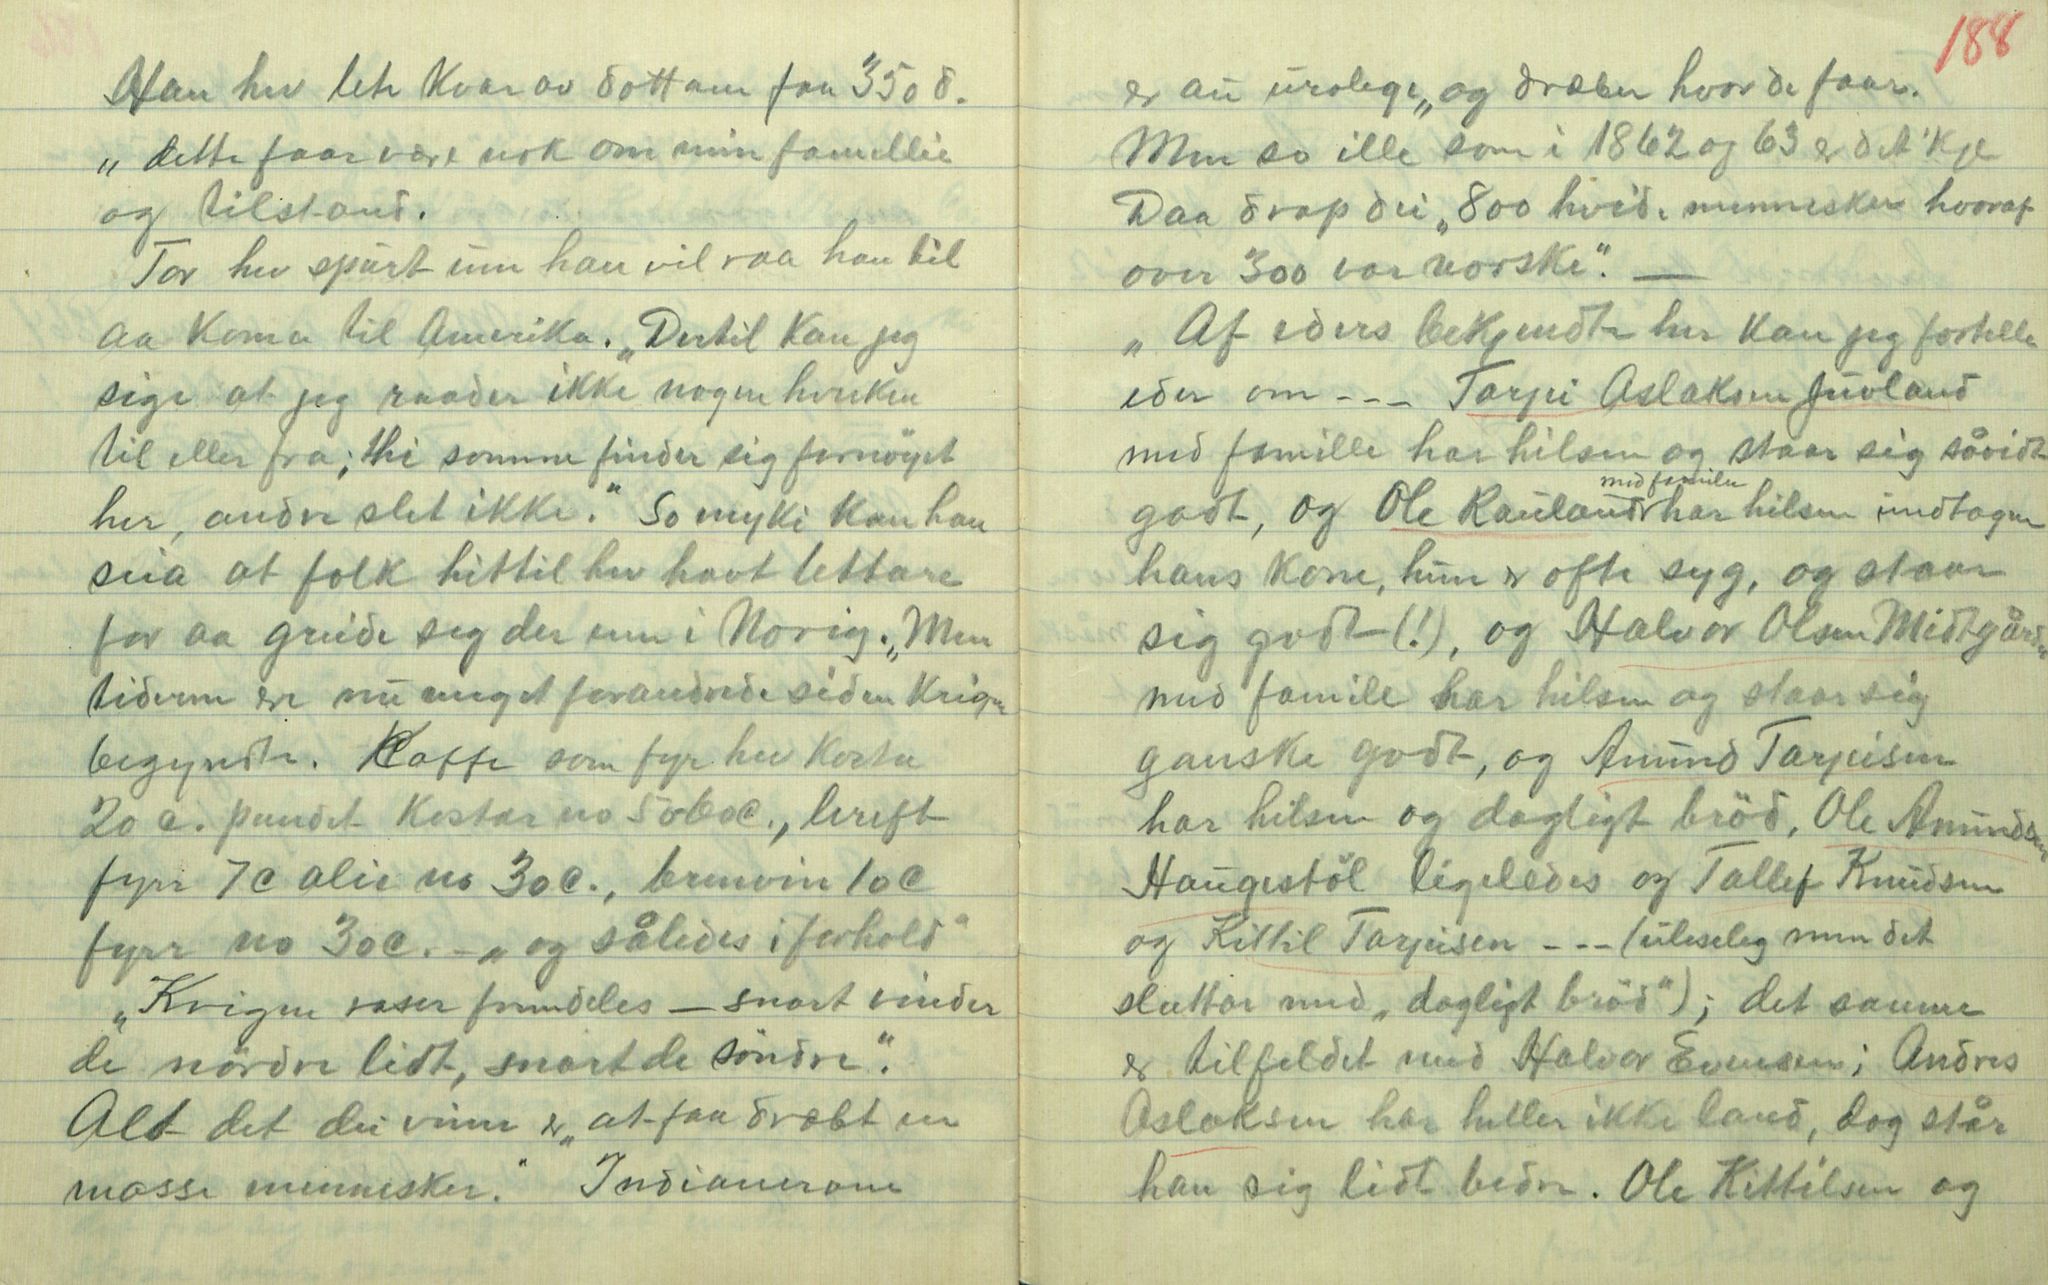 Han hev lete kvar av dottarne faa 350 d.
„dette faar være nok om min famellie
og tilstand.
Tor hev spurt um han vil raa han til
aa koma til Amerika. „Dertil kan jeg
sige at jeg raader ikke nogen hverken
til eller fra; thi somme finder sig fornöyet
her, andre slet ikke." So mykje kan han
seia at folk hittil hev havt lettare
for aa greide seg der enn i Norig. „Men
tiderne ere nu meget forandrede siden Krigen
begyndte. Kaffe som fyr hev kosta
20 c. pundet kostar no 50 60 c., lereft
fyrr 7 c alie no 30 c., brenvin 10 c
fyrr no 30 c. – „og således i forhold"
„Krigen raser fremdeles – snart vinder
de nördre lidt, snart de söndre".
Alt det dei vinne er „at faa dræbt en
masse mennesker." Indianerane
188
er au urolege „og dræber hvor de faar.
Men so ille som i 1862 og 63 er det 'kje
Daa drap dei „800 hvide mennesker hvoraf
over 300 var norske". —
„Af eders bekjendte her kan jeg fortelle
eder om --- Tarjei Aslaksen Juvland
med famille har hilsen og staar sig såvidt
godt, og Ole Rauland med familie har hilsen undtagen
hans kone, hun er ofte syg, og staar
sig godt (!), og Halvor Olsen Midtgården
med famile har hilsen og staar sig
ganske godt, og Anund Tarjeisen
har hilsen og dagligt bröd, Ole Anundsen
Haugestöl ligeledes og Tallef Knudsen
og Kittil Tarjeisen --- (uleseleg men det
sluttar med „dagligt bröd"); det samme
er tilfeldet med Halvor Evensen; Andres
Aslaksen har heller ikke land, dog står
han sig lidt bedre. Ole Kittilsen og